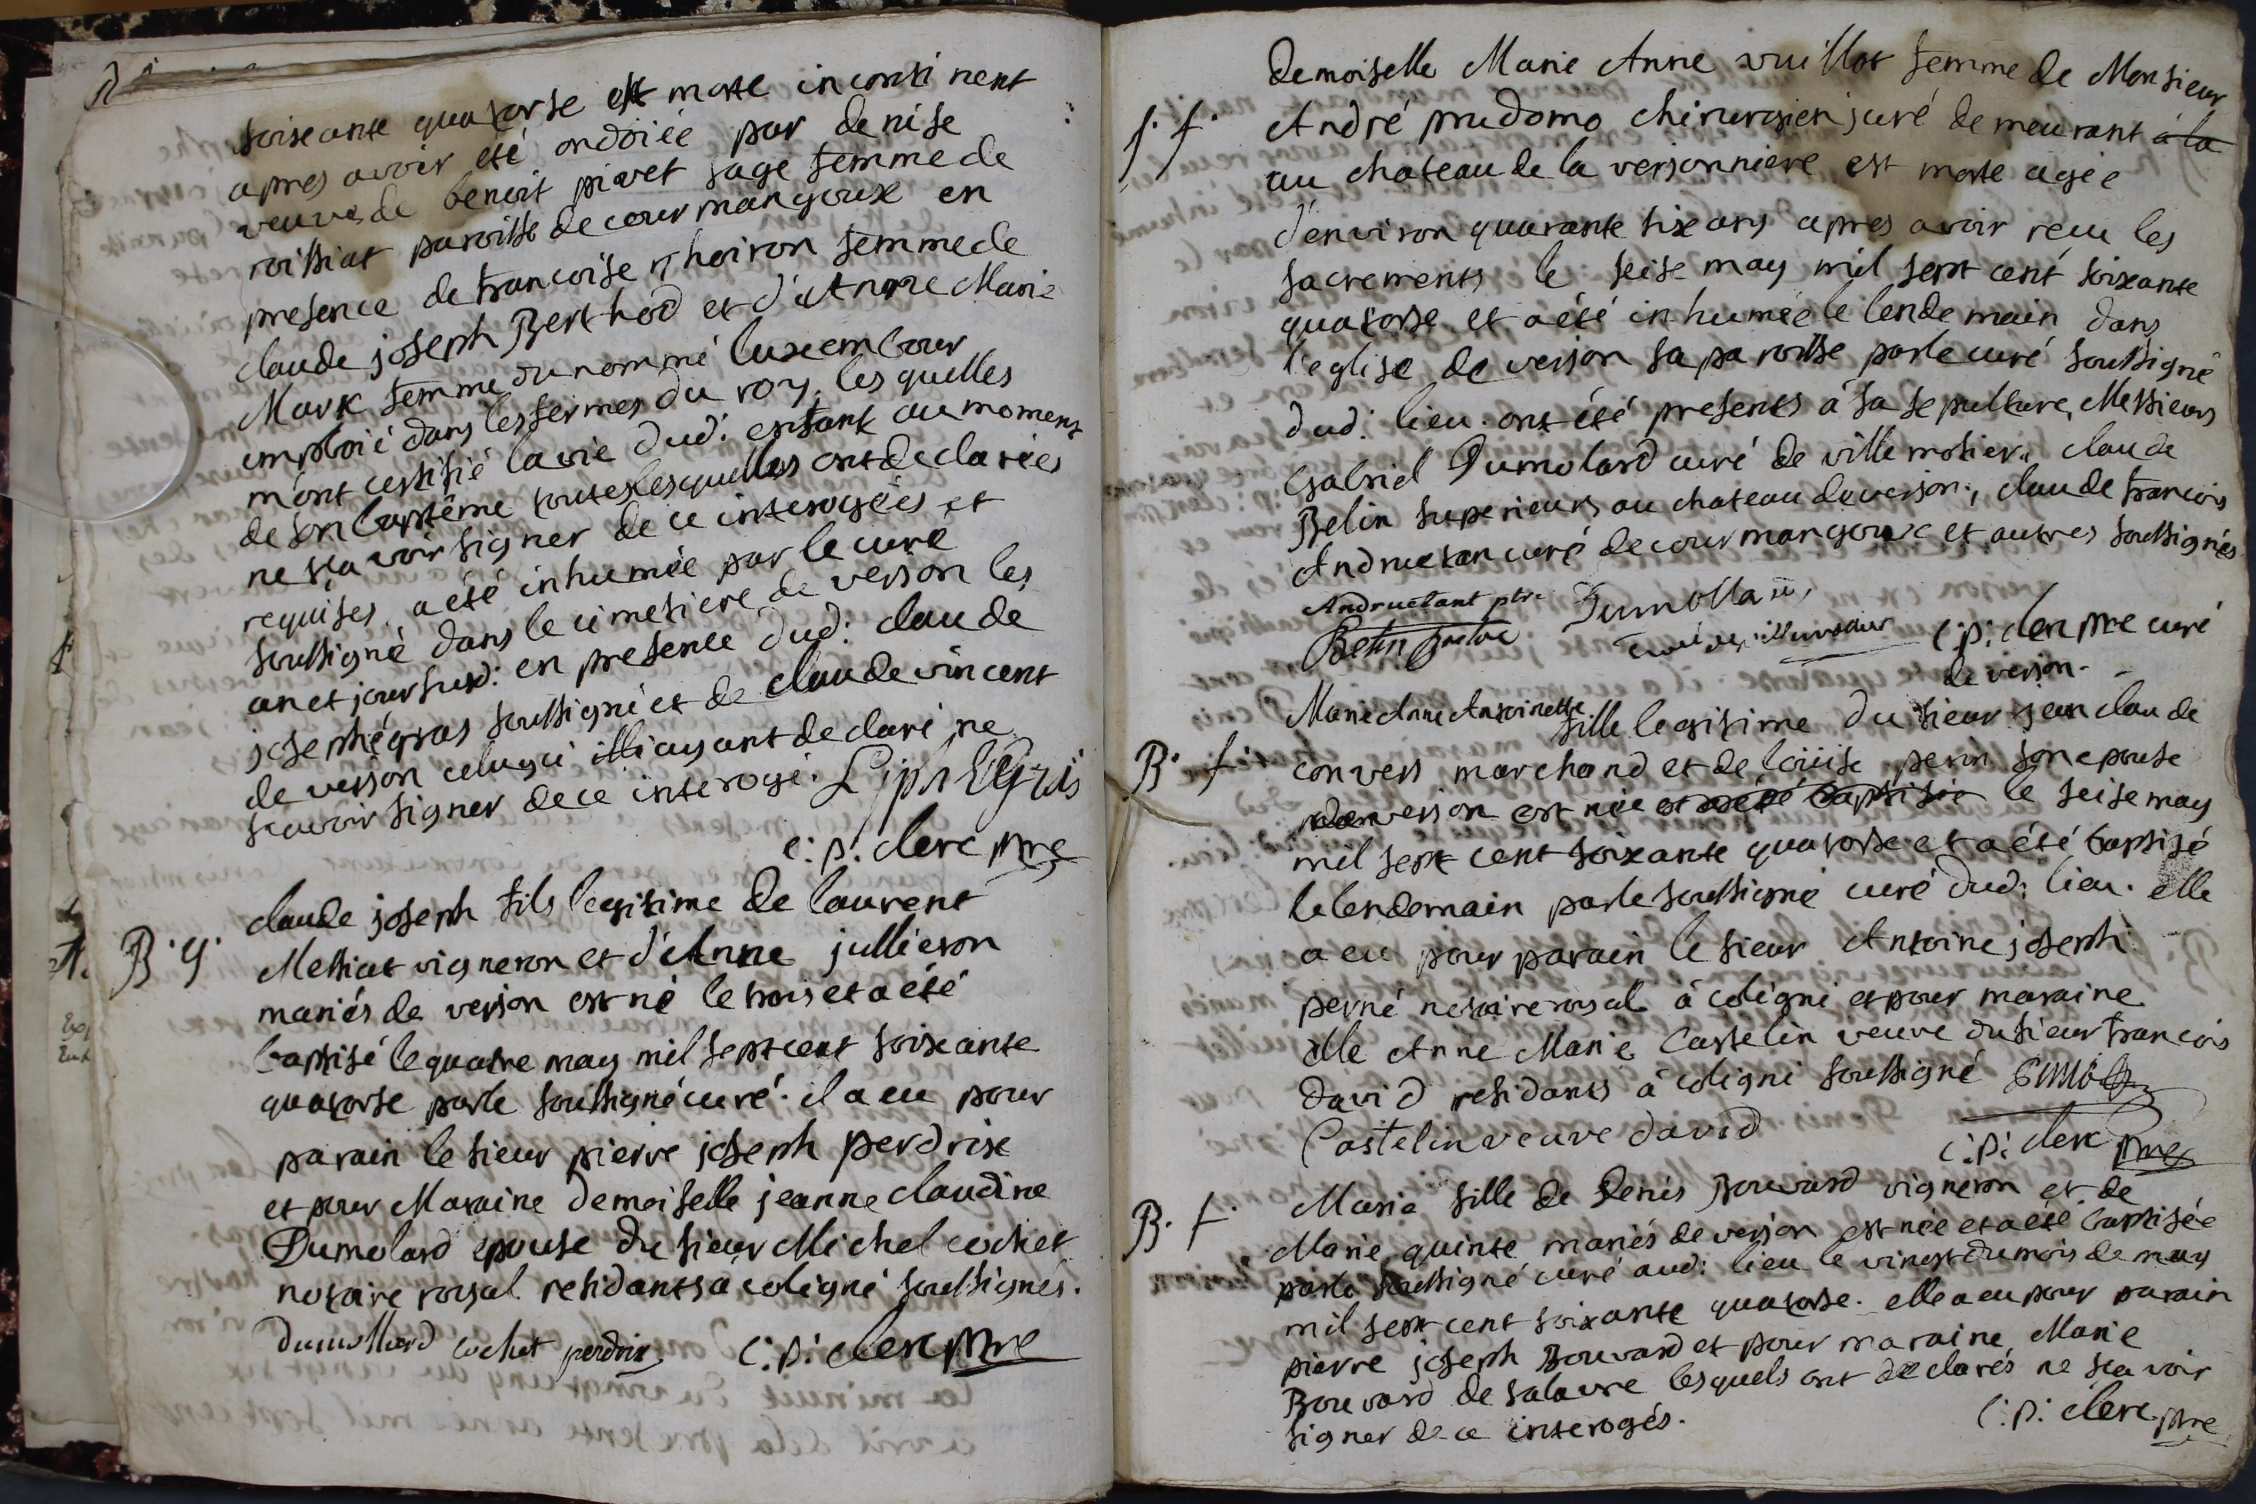 soiseante quatorse est morte incontinent
apres avoir eté ondoiée par denise
veuve de benoit pivet sage femme de
roissiat paroisse de courmangoux en
presence de francoise thoiron femme de
claude joseph Berthod et d'Anne Marie
Mark femme du nommé luxembour
emploié dans les fermes du roy, les quelles
m'ont certifié la vie dud: enfant au moment
de son baptême toutes lesquelles ont declarées
ne sçavoir signer de ce interogées et
requises. a été inhumée par le curé
soussigné dans le cimetiere de verjon les
an et jour susd: en presence dud: claude
joseph égras soussigné et de claude vincent
de verjon celuy ci illi ayant declaré ne
scavoir signer de ce interogé.
c: p: clerc ptre
B. g.
claude joseph fils legitime de laurent
Messiat vigneron et d'Anne jullieron
mariés de verjon est né le trois et a été
baptisé le quatre may mil sept cent soixante
quatorse par le soussigné curé. il a eu pour
parain le sieur pierre joseph perdrix
et pour Maraine demoiselle jeanne claudine
Dumolard epouse du sieur Michel cochet
notaire royal residants à coligné soussignés.
dumollard cochet perdrix c: p: clerc ptre
demoiselle Marie Anne vuillot femme de Monsieur
S. f. André prudomo chirurgien juré demeurant à la
au chateau de la verjonniere est morte agée
d'environ quarante six ans apres avoir recu les
sacrements le seise may mil sept cent soixante
quatorse et a été inhumée le lendemain dans
l'eglise de verjon sa paroisse par le curé soussigné
dud: lieu. ont été presents à sa sepulture, Messieurs
Gabriel Dumolard curé de villemotier, claude
Belin superieurs au chateau de verjon, claude francois
Andructan curé de courmangoux et autres soussignés
Andructant ptre
Belin
c: p: clerc ptre curé
de verjon.
Marie Anne Antoinette
fille legitime du sieur jean claude
B. f. convers marchand et de loüise perin son epouse
de verjon est née et a été baptisée le seise may
mil sept cent soixante quatorse et a été baptisé
le lendemain par le soussigné curé dud: lieu. elle
a eu pour parain le sieur Antoine joseph
perné notaire royal à coligni et pour maraine
dlle Anne Marie Castelin veuve du sieur francois
david residants à coligni soussigné
Castelin veuve david
c: p: clerc ptre
B. f. Marie fille de Denis Bouvard vigneron et de
Marie quinte mariés de verjon est née et a été baptisée
par le soussigné curé aud: lieu le vingt du mois de may
mil sept cent soixante quatorse. elle a eu pour parain
pierre joseph Bouvard et pour maraine Marie
Bouvard de salavre lesquels ont declarés ne sçavoir
signer de ce interogés.
c: p: clerc ptre